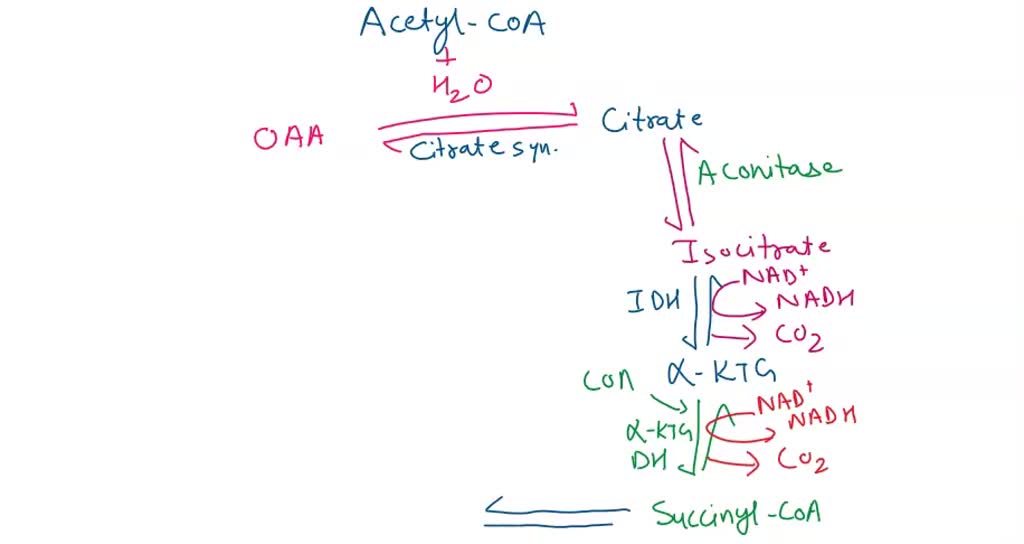 Acetyl-CoA
+
H2O
OAA
Citrate syn.
Citrate
Aconitase
Isocitrate
IDH
NAD+
NADH
CO2
α-KTG
CoA
α-KTG
DH
NAD+
NADH
CO2
Succinyl-CoA